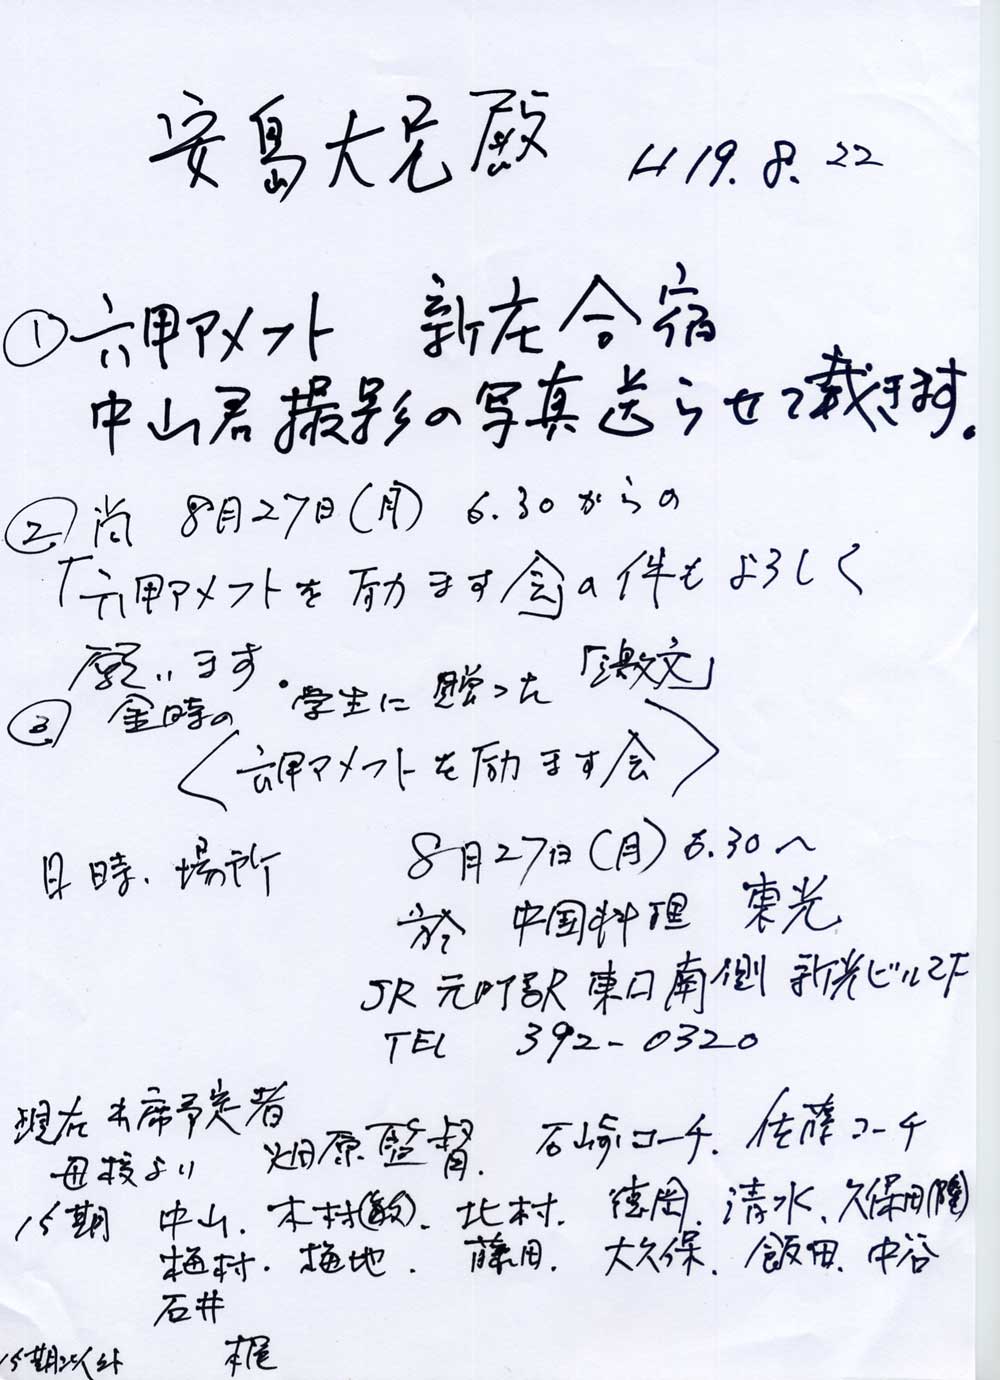 安島大兄殿 H19.8.22
① 六甲アメフト 新在合宿
中山君撮影の写真送らせて戴きます。
② 尚 8月27日(月) 6.30からの
「六甲アメフトを励ます会」の件もよろしく
願います。
③ 金時の 学生に贈った「激文」
〈六甲アメフトを励ます会〉
日時、場所 8月27日(月) 6.30〜
於 中国料理 東光
JR 元町駅 東口南側 新光ビル2F
TEL 392-0320
現在出席予定者
母校より 畑原監督、石崎コーチ、佐藤コーチ
15期 中山、木村(敏)、北村、徳岡、清水、久保田(隆)
梅村、梅地、藤田、大久保、飯田、中谷
石井
15期以外 梶